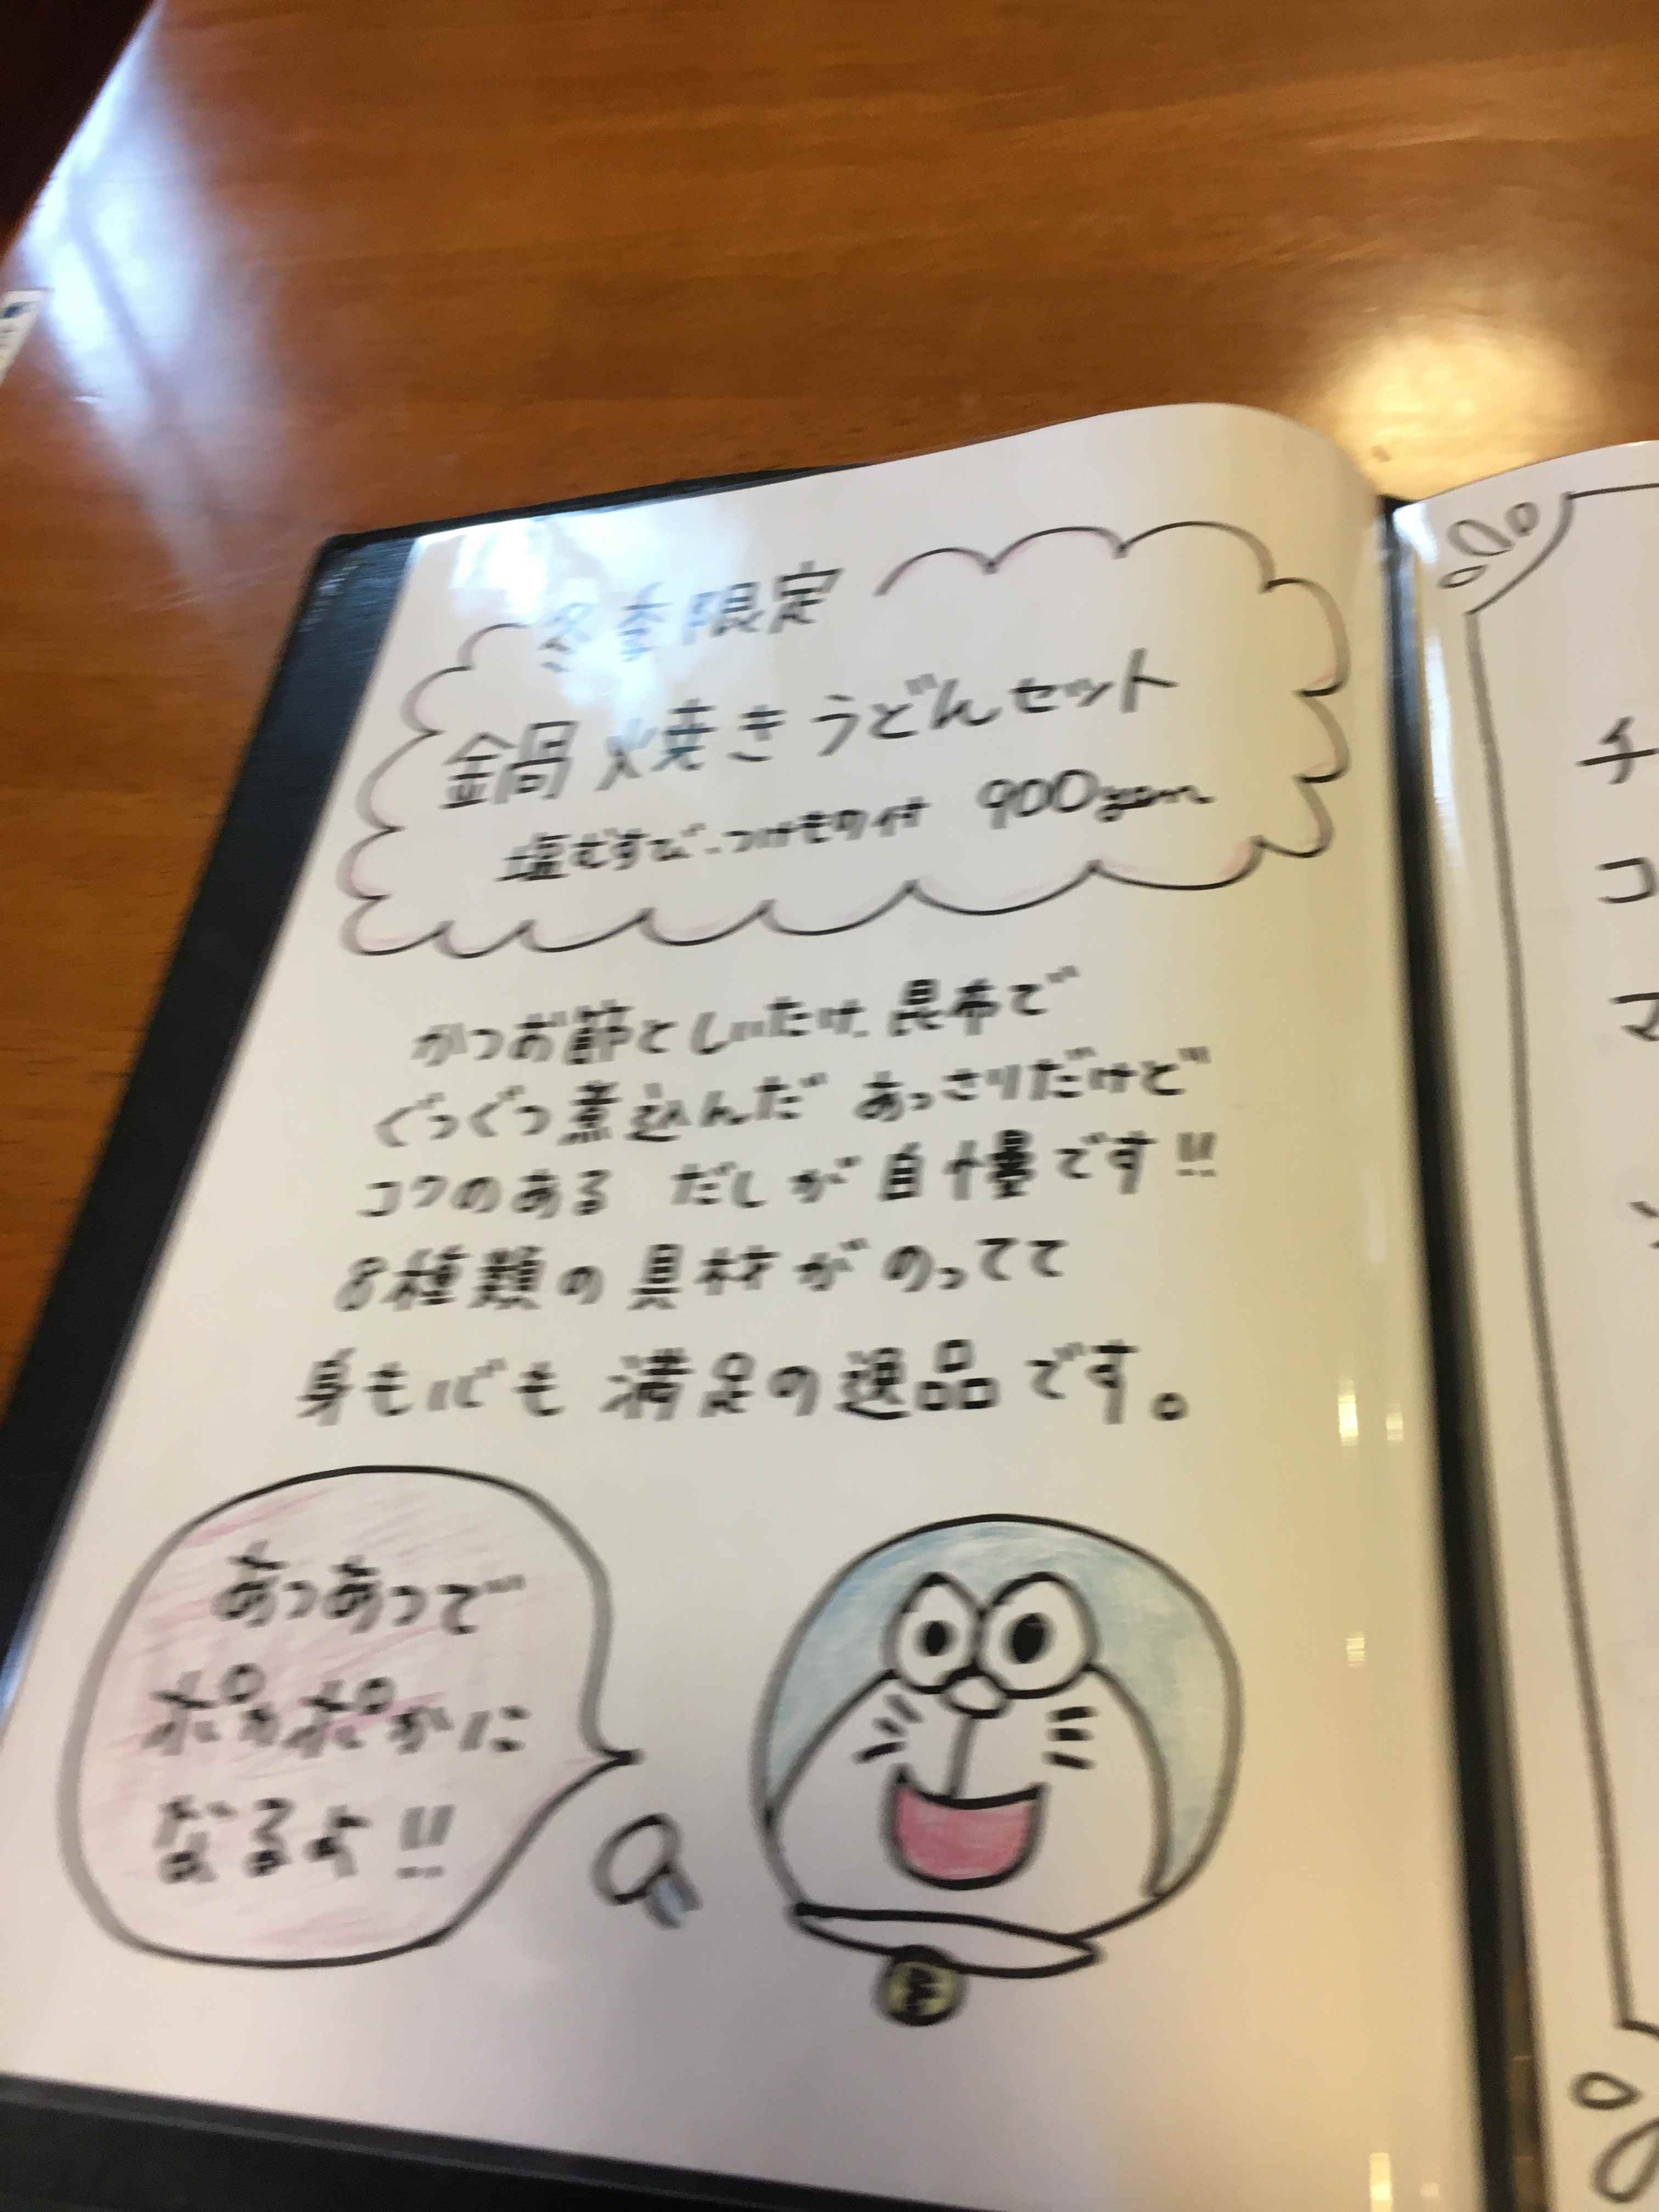 冬季限定
鍋焼きうどんセット
塩むすび、つけもの付 900yen
かつお節としいたけ、昆布で
ぐつぐつ煮込んだ あっさりだけど
コクのある だしが自慢です!!
8種類の具材がのってて
身も心も 満足の逸品です。
あつあつで
ポカポカに
なるよ!!
チ
コ
マ